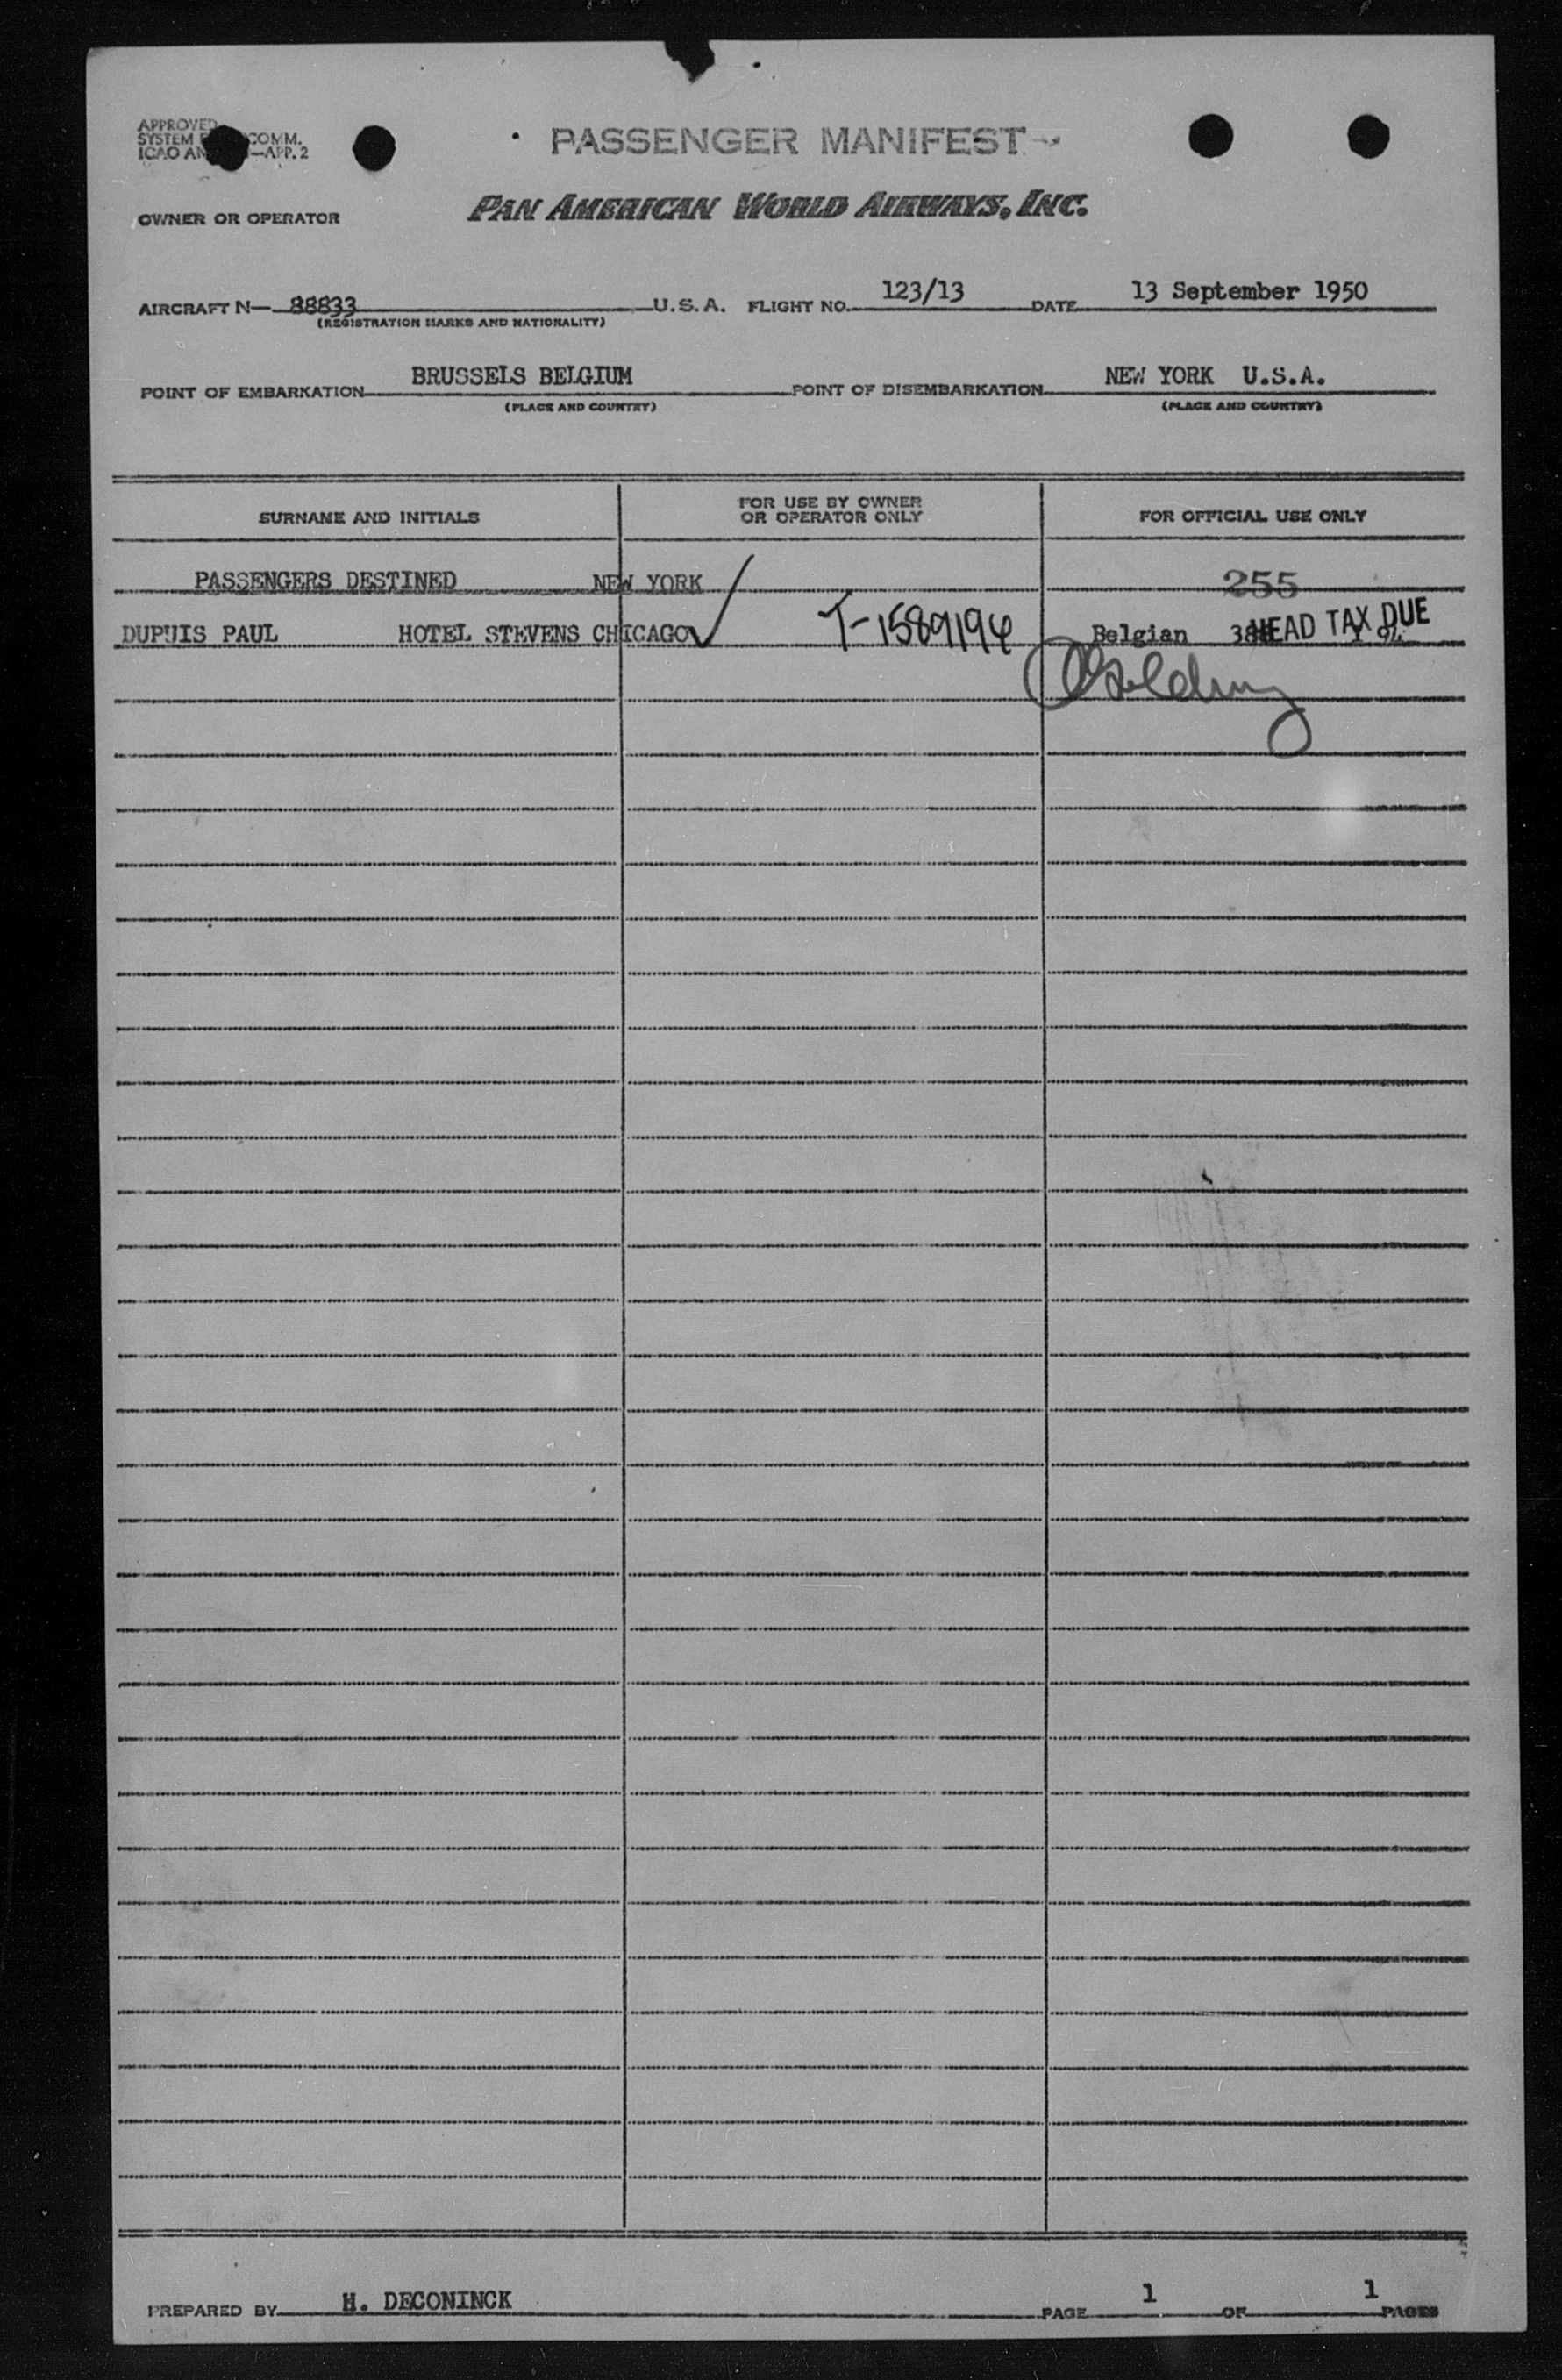 APPROVED
SYSTEM COMM.
ICAO APP. 2
PASSENGER MANIFEST
OWNER OR OPERATOR PAN AMERICAN WORLD AIRWAYS, INC.
AIRCRAFT N— 88833 U.S.A. FLIGHT NO. 123/13 DATE 13 September 1950
(REGISTRATION MARKS AND NATIONALITY)
POINT OF EMBARKATION BRUSSELS BELGIUM POINT OF DISEMBARKATION NEW YORK U.S.A.
(PLACE AND COUNTRY) (PLACE AND COUNTRY)
SURNAME AND INITIALS FOR USE BY OWNER OR OPERATOR ONLY FOR OFFICIAL USE ONLY
PASSENGERS DESTINED NEW YORK 255
DUPUIS PAUL HOTEL STEVENS CHICAGO T-1589194 Belgian HEAD TAX DUE
PREPARED BY H. DECONINCK PAGE 1 OF 1 PAGES